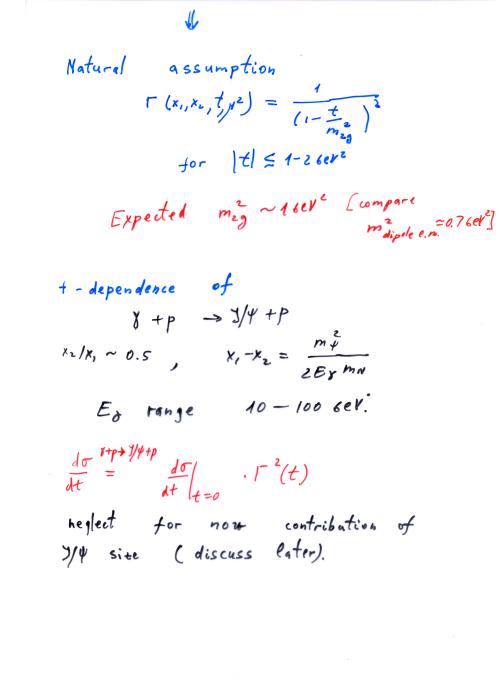 ⇓
Natural assumption
Γ(x₁,x₂,t,μ²) = 1/(1 - t/m²_{2g})²
for |t| ≤ 1-2 GeV²
Expected m²_{2g} ~ 1 GeV² [compare
m²_{dipole e.m.} = 0.7 GeV²]
t - dependence of
γ + p → J/ψ + p
x₂/x₁ ~ 0.5 , x₁ - x₂ = m²_ψ / 2E_γ m_N
E_γ range 10 - 100 GeV.
dσ/dt^{γ+p→J/ψ+p} = dσ/dt|_{t=0} · Γ²(t)
neglect for now contribution of
J/ψ size (discuss later).